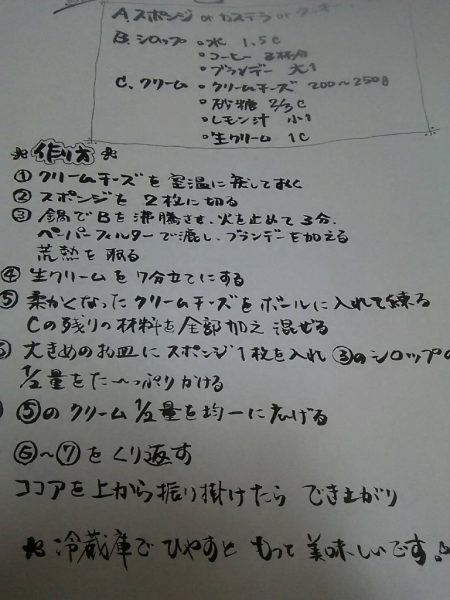 A スポンジ or カステラ or クッキー
B. シロップ ・水 1.5C
・コーヒー 3杯分
・ブランデー 大1
C. クリーム ・クリームチーズ 200～250g
・砂糖 2/3C
・レモン汁 小1
・生クリーム 1C
作り方
① クリームチーズを室温に戻しておく
② スポンジを2枚に切る
③ 鍋でBを沸騰させ、火を止めて3分、
ペーパーフィルターで漉し、ブランデーを加える
荒熱を取る
④ 生クリームを7分立てにする
⑤ 柔かくなったクリームチーズをボールに入れて練る
Cの残りの材料を全部加え 混ぜる
大きめのお皿にスポンジ1枚を入れ ③のシロップの
1/2量をた～っぷりかける
⑤のクリーム1/2量を均一に広げる
⑥～⑦をくり返す
ココアを上から振り掛けたら でき上がり
冷蔵庫でひやすと もって美味しいです♪